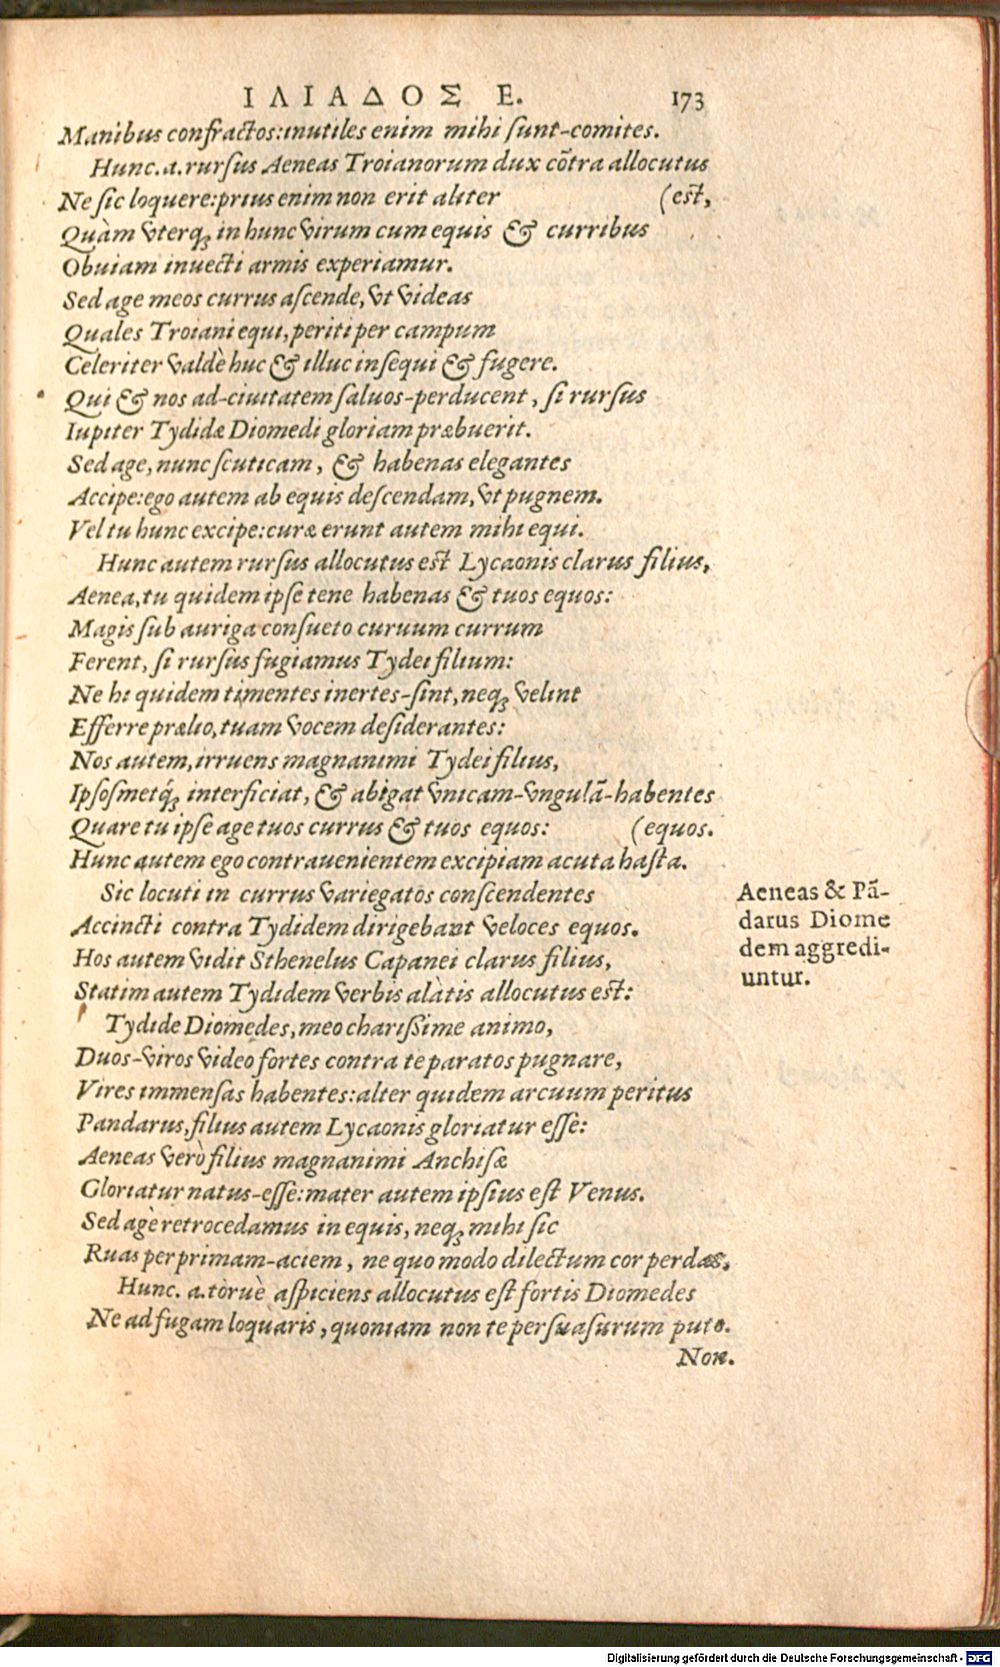 ΙΛΙΑΔΟΣ Ε. 173
Manibus confractos:inutiles enim mihi sunt-comites.
Hunc.a.rursus Aeneas Troianorum dux cõtra allocutus
Ne sic loquere:prius enim non erit aliter (est,
Quàm vterq; in hunc virum cum equis & curribus
Obuiam inuecti armis experiamur.
Sed age meos currus ascende, vt videas
Quales Troiani equi, periti per campum
Celeriter valdè huc & illuc insequi & fugere.
Qui & nos ad-ciuitatem saluos-perducent, si rursus
Iupiter Tydidæ Diomedi gloriam præbuerit.
Sed age, nunc scuticam, & habenas elegantes
Accipe:ego autem ab equis descendam, vt pugnem.
Vel tu hunc excipe:curæ erunt autem mihi equi.
Hunc autem rursus allocutus est Lycaonis clarus filius,
Aenea, tu quidem ipse tene habenas & tuos equos:
Magis sub auriga consueto curuum currum
Ferent, si rursus fugiamus Tydei filium:
Ne hi quidem timentes inertes-sint, neq; velint
Efferre prælio, tuam vocem desiderantes:
Nos autem, irruens magnanimi Tydei filius,
Ipsosmetq́; interficiat, & abigat vnicam-vngulã-habentes
Quare tu ipse age tuos currus & tuos equos: (equos.
Hunc autem ego contrauenientem excipiam acuta hasta.
Sic locuti in currus variegatos conscendentes
Accincti contra Tydidem dirigebant veloces equos.
Hos autem vidit Sthenelus Capanei clarus filius,
Statim autem Tydidem verbis alàtis allocutus est:
Tydide Diomedes, meo charissime animo,
Duos-viros video fortes contra te paratos pugnare,
Vires immensas habentes:alter quidem arcuum peritus
Pandarus, filius autem Lycaonis gloriatur esse:
Aeneas verò filius magnanimi Anchisæ
Gloriatur natus-esse:mater autem ipsius est Venus.
Sed agè retrocedamus in equis, neq; mihi sic
Ruas per primam-aciem, ne quo modo dilectum cor perdas.
Hunc. a. toruè aspiciens allocutus est fortis Diomedes
Ne ad fugam loquaris, quoniam non te persuasurum puto.
Non.
Aeneas & Pã-
darus Diome
dem aggredi-
untur.
Digitalisierung gefördert durch die Deutsche Forschungsgemeinschaft - DFG